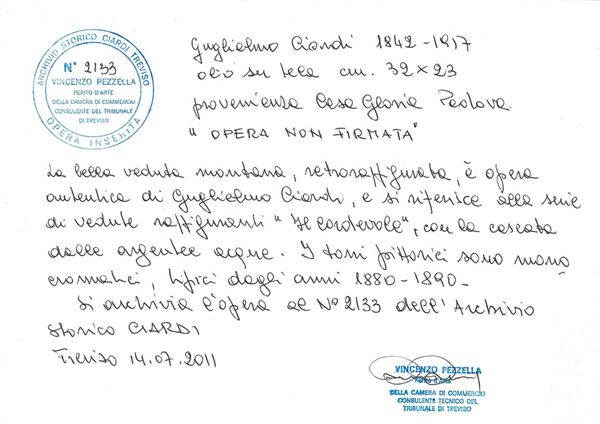 ARCHIVIO STORICO CIARDI TREVISO
N° 2133
VINCENZO PEZZELLA
PERITO D'ARTE
DELLA CAMERA DI COMMERCIO
CONSULENTE DEL TRIBUNALE
DI TREVISO
OPERA INSERITA
Guglielmo Ciardi 1842-1917
olio su tela cm. 32×23
provenienza Casa Gloria Padova
" OPERA NON FIRMATA"
La bella veduta montana, retroraffigurata, è opera
autentica di Guglielmo Ciardi, e si riferisce alla serie
di vedute raffiguranti "Il Cordevole", con la cascata
dalle argentee acque. I toni pittorici sono mono
cromatici, tipici dagli anni 1880-1890-
Si archivia l'opera al N° 2133 dell'Archivio
Storico CIARDI
Treviso 14.07.2011
VINCENZO PEZZELLA
PERITO D'ARTE
DELLA CAMERA DI COMMERCIO
CONSULENTE TECNICO DEL
TRIBUNALE DI TREVISO